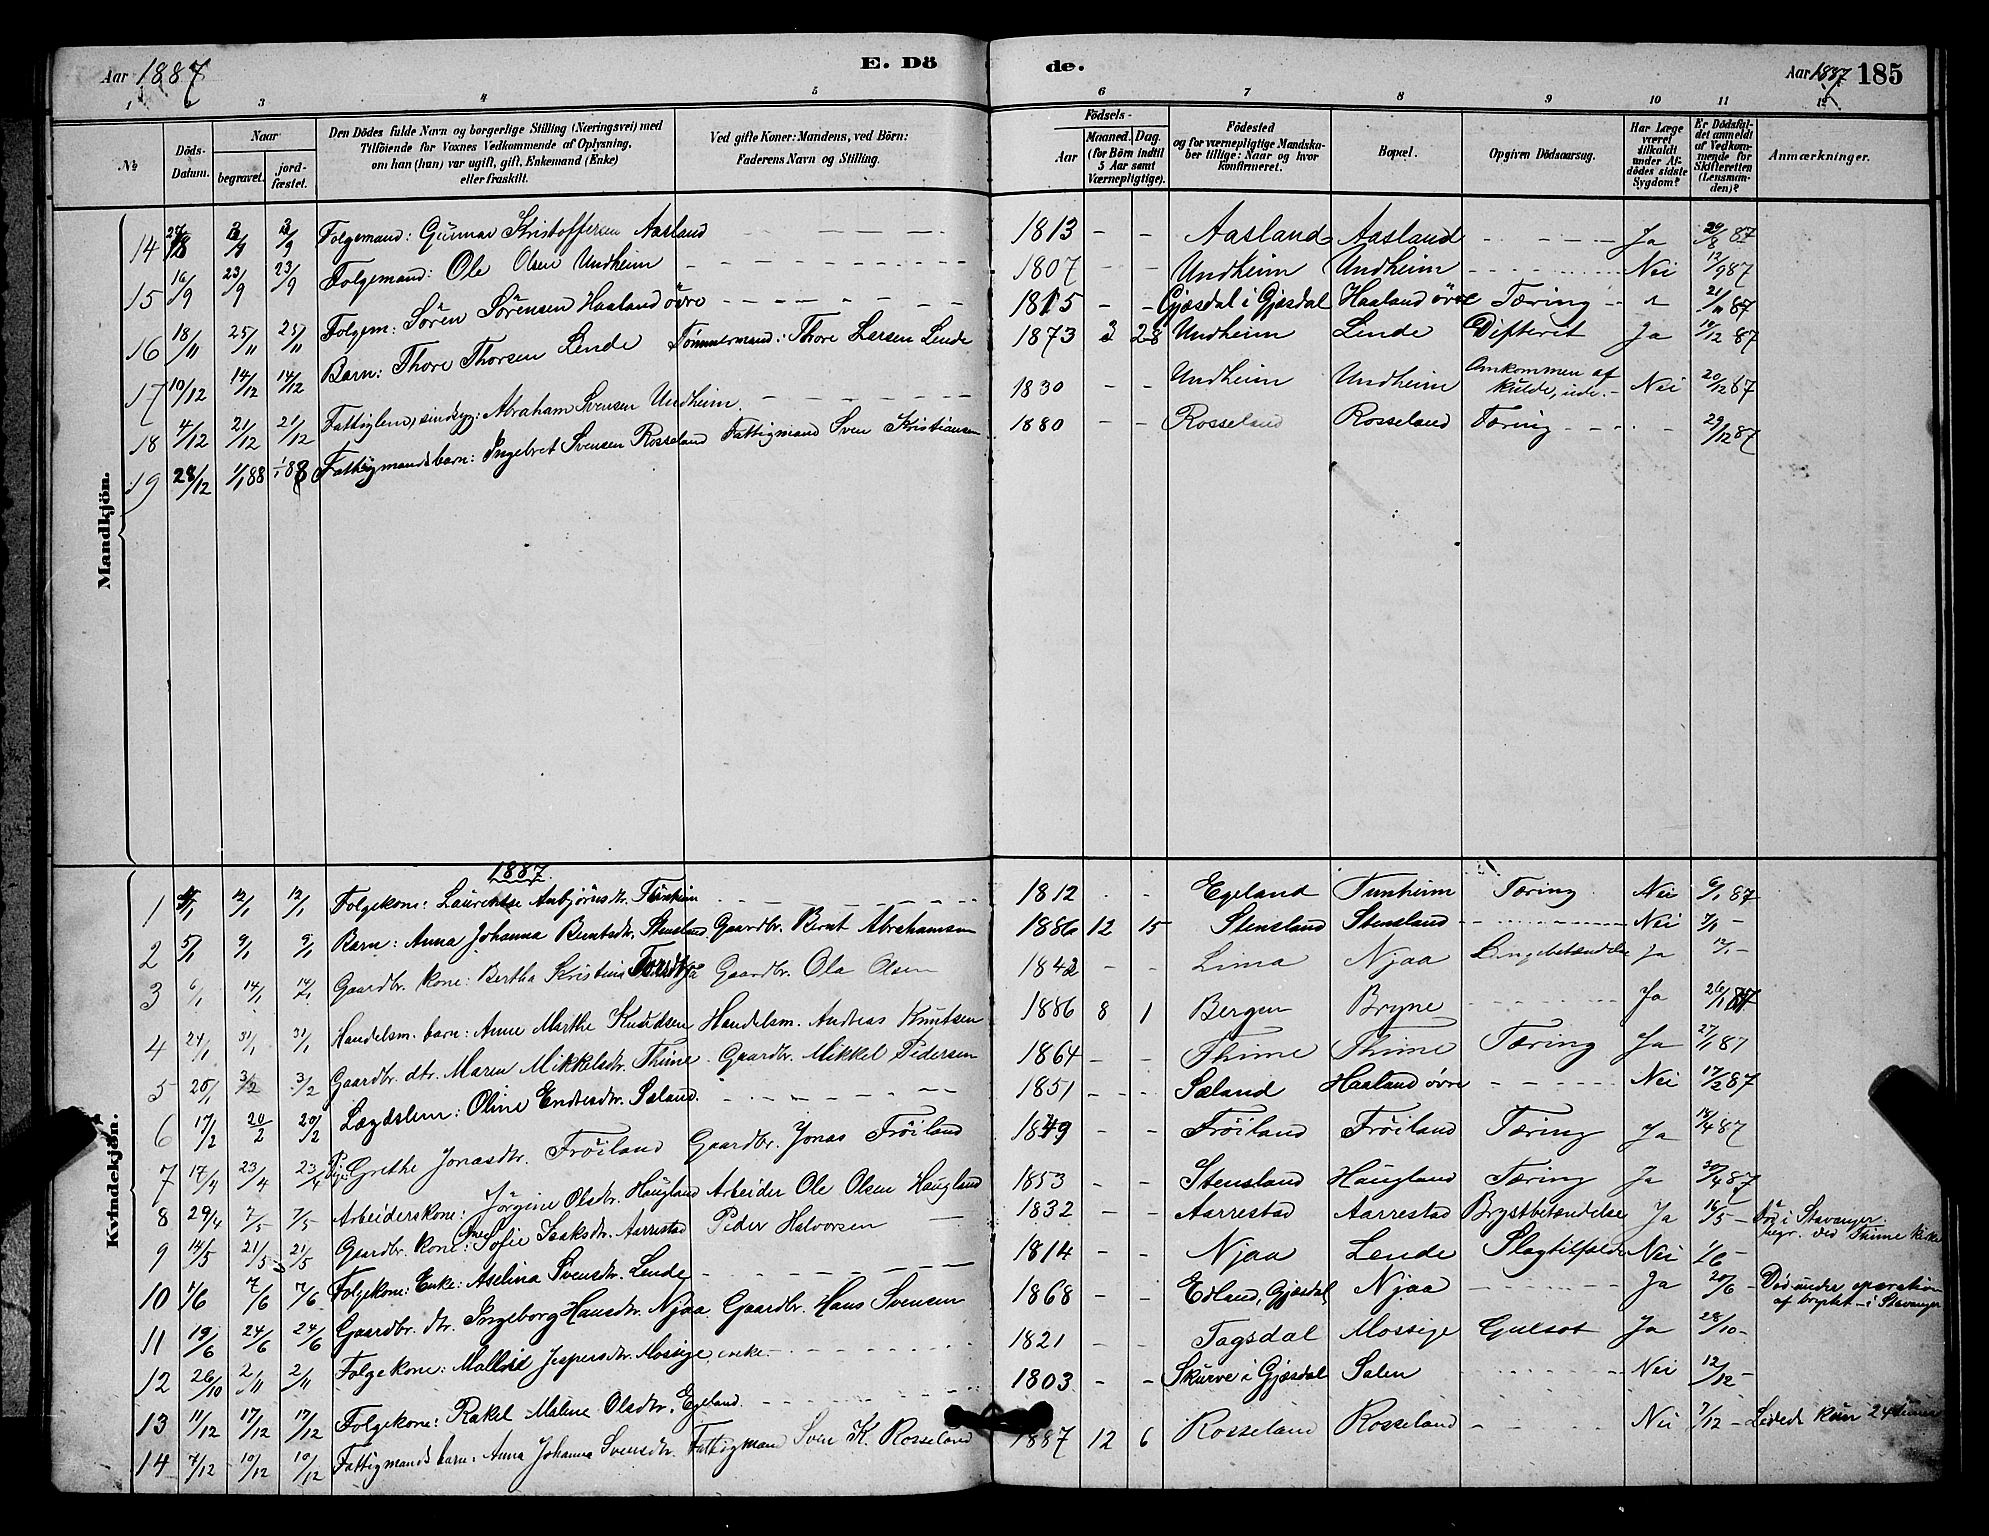 Aar 1887
E. Dö
de.
Aar 1887
185
1 2 3 4 5 6 7 8 9 10 11 12
№
Döds-
Datum.
Naar
begravet.
jord-
fæstet.
Den Dödes fulde Navn og borgerlige Stilling (Næringsvei) med
Tilföiende for Voxnes Vedkommende af Oplysning,
om han (hun) var ugift, gift, Enkemand (Enke)
eller fraskilt.
Ved gifte Koner: Mandens, ved Börn:
Faderens Navn og Stilling.
Födsels-
Aar
Maaned.
Dag.
(for Börn indtil
5 Aar samt
Værnepligtige).
Födested
og for værnepligtige Mandsku-
ber tillige: Naar og hvor
konfirmeret.
Bopæl.
Opgiven Dödsaarsag.
Har Læge
været
tilkaldt
under Af-
dödes sidste
Sygdom?
Er Dödsfal-
det anmeldt
af Vedkom-
mende for
Skifteretten
(Lensman-
den)?
Anmærkninger.
Mandkjön.
14 3/9 3/9 Folgemand: Gunnar Kristoffersen Aasland - - 1813 - - Aasland Aasland - - Ja 29/8 87
15 16/9 23/9 23/9 Folgemand: Ole Olsen Undheim - - 1807 - - Undheim Undheim - - Nei 12/9 87
16 18/11 25/11 25/11 Folgem: Sören Sörensen Haaland övre - - 1815 - - Gjæsdal i Gjæsdal Haaland övre Tæring - - 21/11 87
17 10/12 14/12 14/12 Barn: Thore Thorsen Lende Tömmermand: Thore Larsen Lende 1873 3 28 Undheim Lende Difterit Ja 12/12 87
18 4/12 21/12 21/12 Fattiglem, sindsyg: Abraham Svensen Undheim. - - 1830 - - Undheim Undheim Omkommen af
kulde, ude. - Nei 20/12 87
19 28/12 1/1 88 1/1 88 Fattigmandsbarn: Ingebret Svensen Rosseland Fattigmand Sven Kristiansen 1880 - - Rosseland Rosseland Tæring - - 29/12 87
Kvindekjön.
1887.
1 12/1 12/1 Folgekone: Laurentse Anbjörnsdtr. Tunheim - - 1812 - - Egeland Tunheim Tæring Nei 6/1 87
2 5/1 9/1 9/1 Barn: Anna Johanna Berntsdtr. Stensland. Gaardbr. Bernt Abrahamsen 1886 12 15 Stensland Stensland - - Nei 7/1 -
3 6/1 14/1 14/1 Gaardbr. kone: Bertha Kristine Gaardbr. Ola Olsen 1842 - - Lima Njaa Lungebetændelse Ja 12/1 -
4 24/1 31/1 31/1 Handelsm. barn: Anne Marthe Knudsen Handelsm. Andreas Knutsen 1886 8 1 Bergen Bryne - - Ja 26/1 87
5 25/1 3/2 3/2 Gaardbr. dtr. Maren Mikkelsdtr. Thime. Gaardbr. Mikkel Pedersen 1864 - - Thime Thime Tæring Ja 27/1 87
6 17/2 20/2 20/2 Lægdslem: Oline Endresdtr. Sæland. - - 1851 - - Sæland Haaland övre - - Nei 17/2 87
7 14/4 23/4 23/4 Pige Grethe Jonasdtr. Fröiland Gaardbr. Jonas Fröiland 1849 - - Fröiland Fröiland Tæring Ja 18/4 87
8 29/4 7/5 7/5 Arbeiderskone: Jörgine Olsdtr. Haugland Arbeider Ole Olsen Haugland 1853 - - Stensland Haugland Tæring Ja 30/4 87
9 14/5 21/5 21/5 Gaardbr. kone: Sofie Isaksdtr. Aarrestad Peder Halvorsen - 1832 - - Aarrestad Aarrestad Brystbetændelse Ja 16/5 - Död i Stavanger
begr. ved Thime kirke
10 1/6 7/6 7/6 Folgekone: Enke: Aselina Svensdtr. Lende - - 1814 - - Njaa Lende Slagtilfælde Nei 1/6 -
11 19/6 24/6 24/6 Gaardbr. dtr. Ingeborg Hansdtr. Njaa. Gaardbr. Hans Svensen 1868 - - Edland, Gjæsdal Njaa - - Ja 20/6 - Död under operation
af brystet - i Stavanger
12 26/10 2/11 2/11 Folgekone: Jespersdtr. Mossige, enke - - 1821 - - Tagsdal Mossige Gulsot Ja 28/10 -
13 11/12 17/12 17/12 Folgekone: Rakel Malene Olsdtr. Egeland. - - 1803 - - Skurve i Gjæsdal Salen - - Nei 12/12 -
14 7/12 10/12 10/12 Fattigmandsbarn: Anna Johanna Svensdtr. Fattigman Sven K. Rosseland 1887 12 6 Rosseland Rosseland - - Nei 7/12 - Levede kun 24 timer